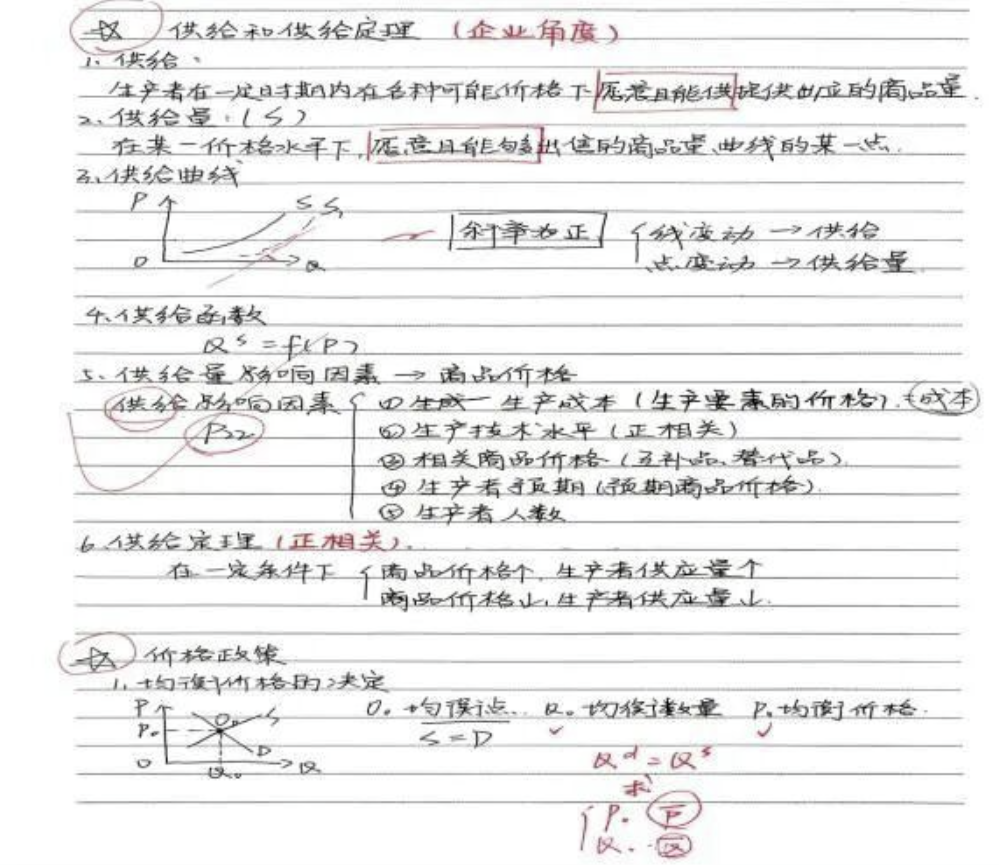 ☆ 供给和供给定理 (企业角度)
1、供给：
生产者在一定时期内在各种可能价格下愿意且能供提供出应的商品量.
2、供给量：(S)
在某一价格水平下,愿意且能够出售的商品量,曲线的某一点.
3、供给曲线
P S S₁
斜率为正 线变动 → 供给
0 Q 点变动 → 供给量
4、供给函数
Qˢ = f(P)
5、供给量影响因素 → 商品价格
供给影响因素 ① 生成一 生产成本 (生产要素的价格). 成本
P22 ② 生产技术水平 (正相关)
③ 相关商品价格 (互补品、替代品).
④ 生产者预期 (预期商品价格).
⑤ 生产者人数
6、供给定理 (正相关).
在一定条件下 商品价格个, 生产者供应量个
商品价格↓, 生产者供应量↓.
☆ 价格政策
1、均衡价格的决定
P S O。均误点.. Q。均衡数量 P。均衡价格.
P。 O。 S = D
D
0 Q。 Q
Qᵈ = Qˢ
求
P。 P
Q。